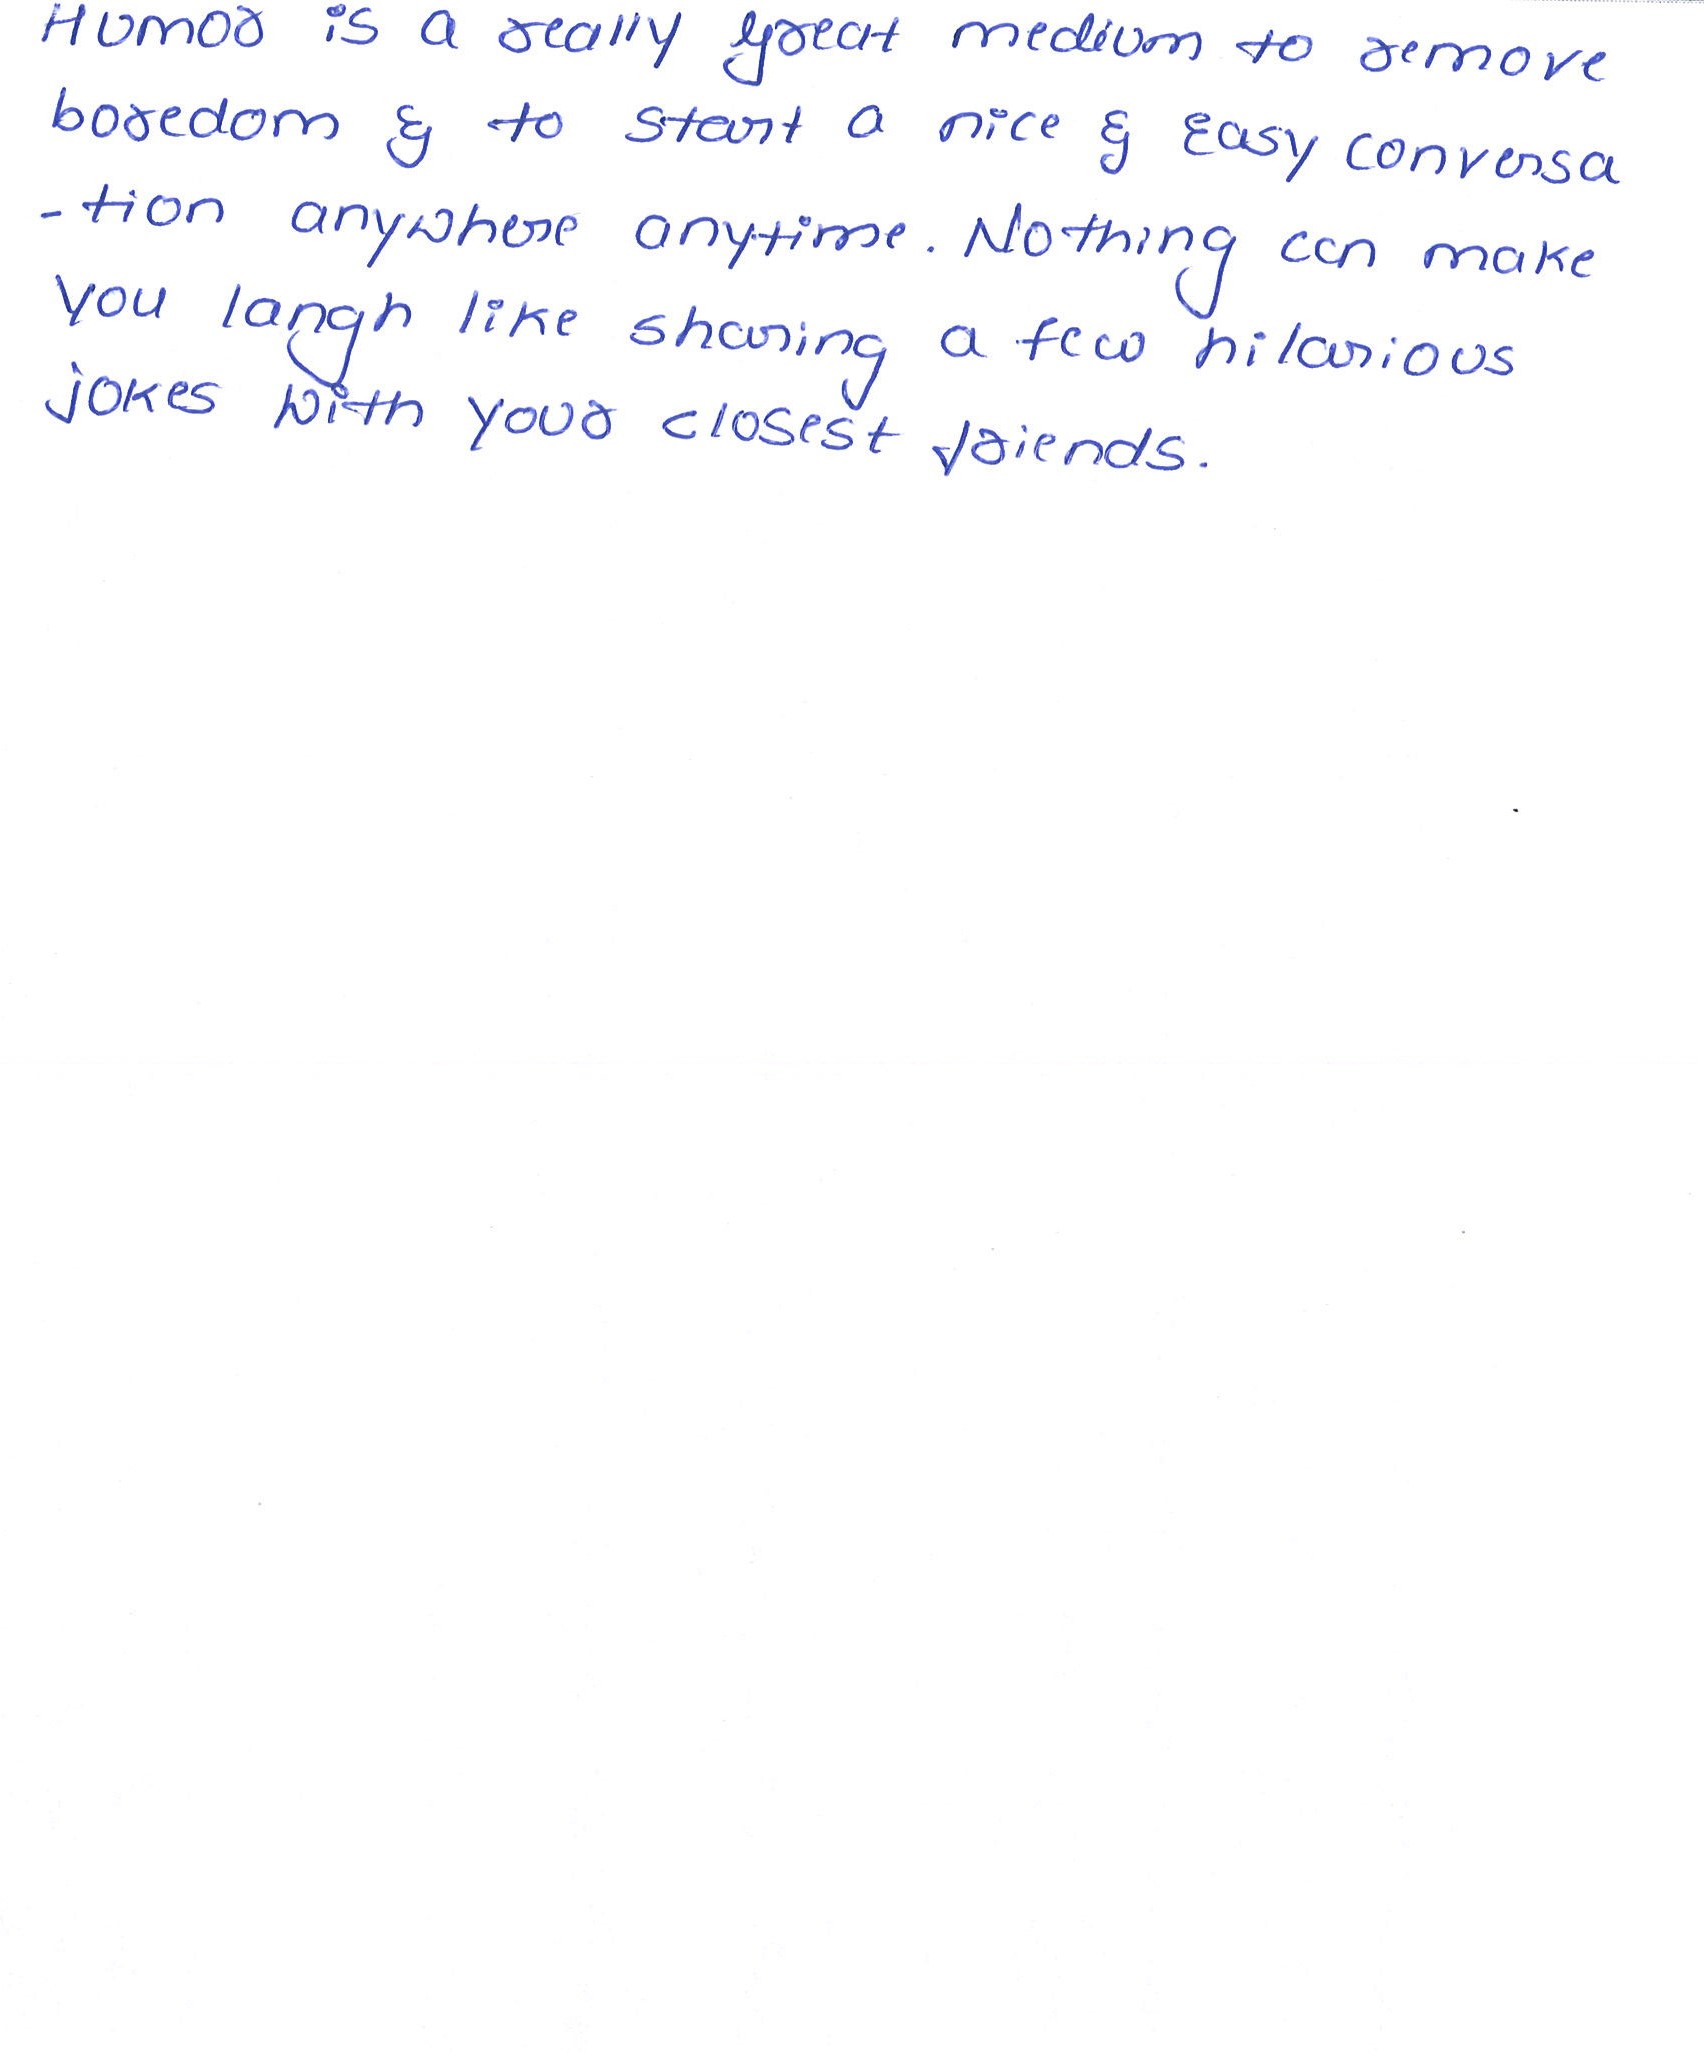 Humor is a really great medium to remove
boredom & to start a nice & easy conversa
-tion anywhere anytime. Nothing can make
you laugh like sharing a few hilarious
jokes with your closest friends.